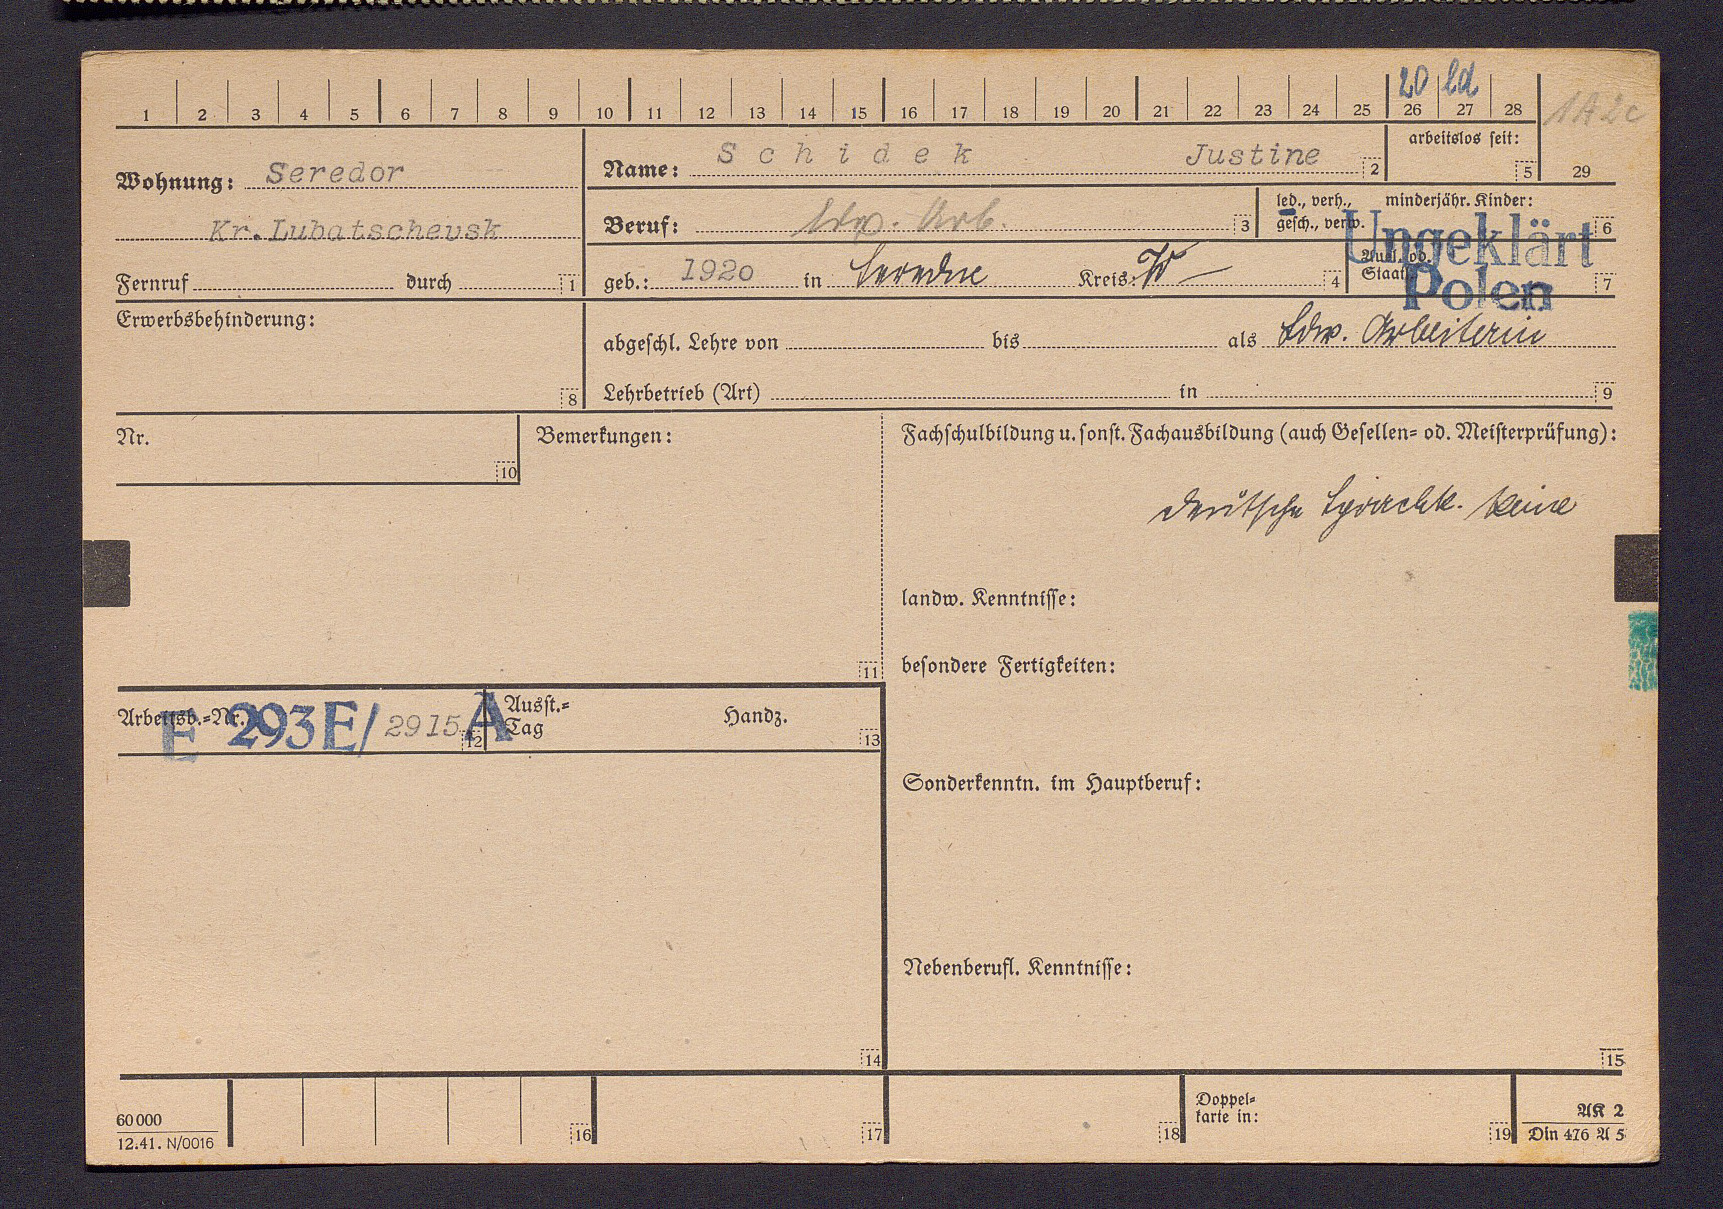 20 ld
1 2 3 4 5 6 7 8 9 10 11 12 13 14 15 16 17 18 19 20 21 22 23 24 25 26 27 28
1A2c
29
Wohnung: Seredor
Kr. Lubatschevsk
Fernruf durch 1
Name: Schidek Justine 2
arbeitslos seit: 5
Beruf: ldw. Arb. 3
led., verh., gesch., verw.
minderjähr. Kinder: 6
geb.: 1920 in Seredne Kreis: 4
Ausl. od. Staatl. 7
Ungeklärt
Polen
Erwerbsbehinderung: 8
abgeschl. Lehre von bis als Ldw. Arbeiterin
Lehrbetrieb (Art) in 9
Nr. 10
Bemerkungen: 11
Fachschulbildung u. sonst. Fachausbildung (auch Gesellen- od. Meisterprüfung):
deutsche Sprachk. keine
landw. Kenntnisse:
besondere Fertigkeiten:
Arbeitsb.-Nr. E 293E/2915 A 12
Ausst.-Tag Handz. 13
Sonderkenntn. im Hauptberuf:
Nebenberufl. Kenntnisse:
14
15
60 000
12.41. N/0016
16
17
18
Doppel-
karte in: 19
AK 2
Din 476 A 5